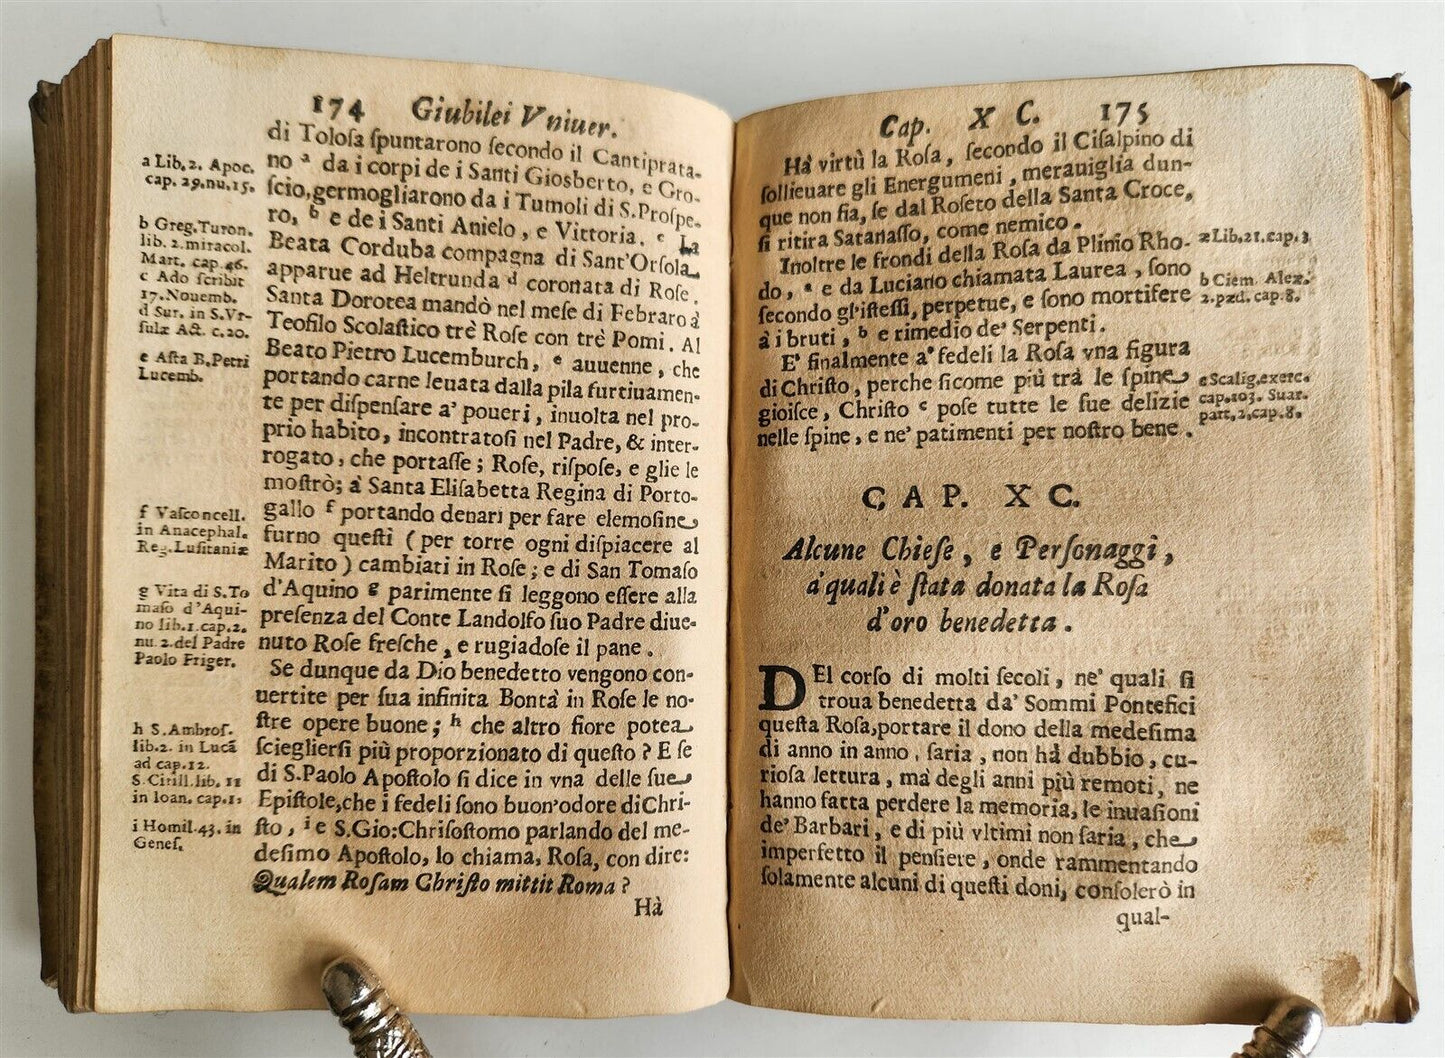 174 Giubilei Vniuer.
di Tolosa spuntarono secondo il Cantiprata-
no ᵃ da i corpi de i Santi Giosberto, e Gro-
scio,germogliarono da i Tumoli di S.Prospe-
ro, ᵇ e de i Santi Anielo, e Vittoria. ᶜ La
Beata Corduba compagna di Sant'Orsola
apparue ad Heltrunda ᵈ coronata di Rose.
Santa Dorotea mandò nel mese di Febraro à
Teofilo Scolastico trè Rose con trè Pomi. Al
Beato Pietro Lucemburch, ᵉ auuenne, che
portando carne leuata dalla pila furtiuamen-
te per dispensare a' poueri, inuolta nel pro-
prio habito, incontratosi nel Padre, & inter-
rogato, che portasse; Rose, rispose, e glie le
mostrò; à Santa Elisabetta Regina di Porto-
gallo ᶠ portando denari per fare elemosine
furno questi (per torre ogni dispiacere al
Marito) cambiati in Rose; e di San Tomaso
d'Aquino ᵍ parimente si leggono essere alla
presenza del Conte Landolfo suo Padre diue-
nuto Rose fresche, e rugiadose il pane.
Se dunque da Dio benedetto vengono con-
uertite per sua infinita Bontà in Rose le no-
stre opere buone; ʰ che altro fiore potea
sciegliersi più proporzionato di questo? E se
di S.Paolo Apostolo si dice in vna delle sue
Epistole,che i fedeli sono buon'odore di Chri-
sto, ⁱ e S.Gio:Chrisostomo parlando del me-
desimo Apostolo, lo chiama, Rosa, con dire:
Qualem Rosam Christo mittit Roma?
Hà
a Lib. 2. Apoc.
cap. 29.nu.15.
b Greg.Turon.
lib. 2.miracol.
Mart. cap. 46.
c Ado scribit
17.Nouemb.
d Sur. in S.Vr-
sulæ Act. c.20.
e Asta B.Petri
Lucemb.
f Vasconcell.
in Anacephal.
Reg.Lusitaniæ
g Vita di S.To
maso d'Aqui-
no lib.1.cap.2.
nu 2.del Padre
Paolo Friger.
h S.Ambros.
lib.2. in Lucã
ad cap.12.
S. Cirill.lib. 11
in Ioan. cap.1.
i Homil.43. in
Genes.
Cap. X C. 175
Hà virtù la Rosa, secondo il Cisalpino di
sollieuare gli Energumeni, merauiglia dun-
que non fia, se dal Roseto della Santa Croce,
si ritira Satanasso, come nemico.
Inoltre le frondi della Rosa da Plinio Rho-
do, ᵃ e da Luciano chiamata Laurea, sono
secondo gl'istessi, perpetue, e sono mortifere
à i bruti, ᵇ e rimedio de' Serpenti.
E' finalmente a' fedeli la Rosa vna figura
di Christo, perche sicome più trà le spine
gioisce, Christo ᶜ pose tutte le sue delizie
nelle spine, e ne' patimenti per nostro bene.
a Lib.21.cap.3
b Clem. Alex.
2.pæd. cap.8.
c Scalig.exerc.
cap.103. Suar.
part.2.cap.8.
CAP. XC.
Alcune Chiese, e Personaggi,
a' quali è stata donata la Rosa
d'oro benedetta.
DEl corso di molti secoli, ne' quali si
troua benedetta da' Sommi Pontefici
questa Rosa,portare il dono della medesima
di anno in anno, saria, non hà dubbio, cu-
riosa lettura, mà degli anni più remoti, ne
hanno fatta perdere la memoria, le inuasioni
de' Barbari, e di più vltimi non saria, che
imperfetto il pensiere, onde rammentando
solamente alcuni di questi doni, consolerò in
qual-